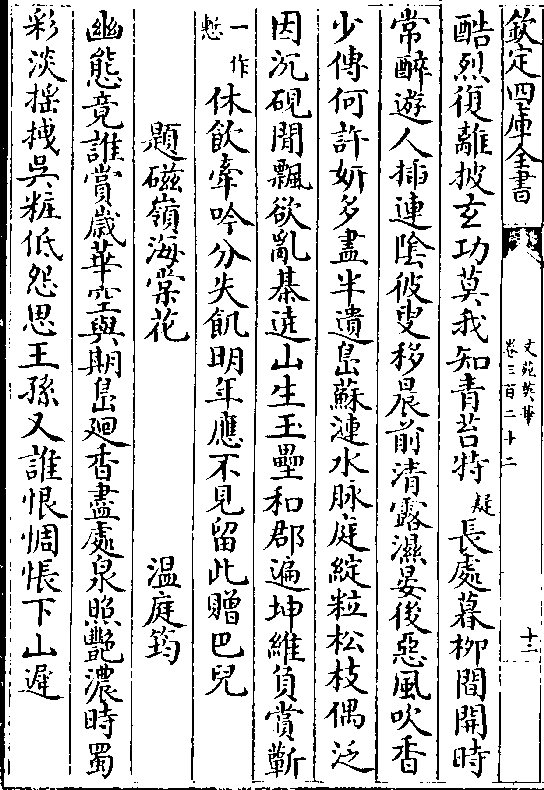 欽定四庫全書
文苑英華
卷三百二十二
十三
酷烈復離披玄功莫我知青苔特疑長處暮柳閒開時
常醉遊人插連陰彼叟移晨前清露濕晏後惡風吹香
少傳何許妍多盡半遺島蘇漣水脉庭綻粒松枝偶泛
因沉硯閒飄欲亂棊遶山生玉壘和郡遍坤維負賞慚
一作慙休飲牽吟分失飢明年應不見留此贈巴兒
題磁嶺海棠花 溫庭筠
幽態竟誰賞歲華空與期島廻香盡處泉照艷濃時蜀
彩淡搖拽吳粧低怨思王孫又誰恨惆悵下山遲